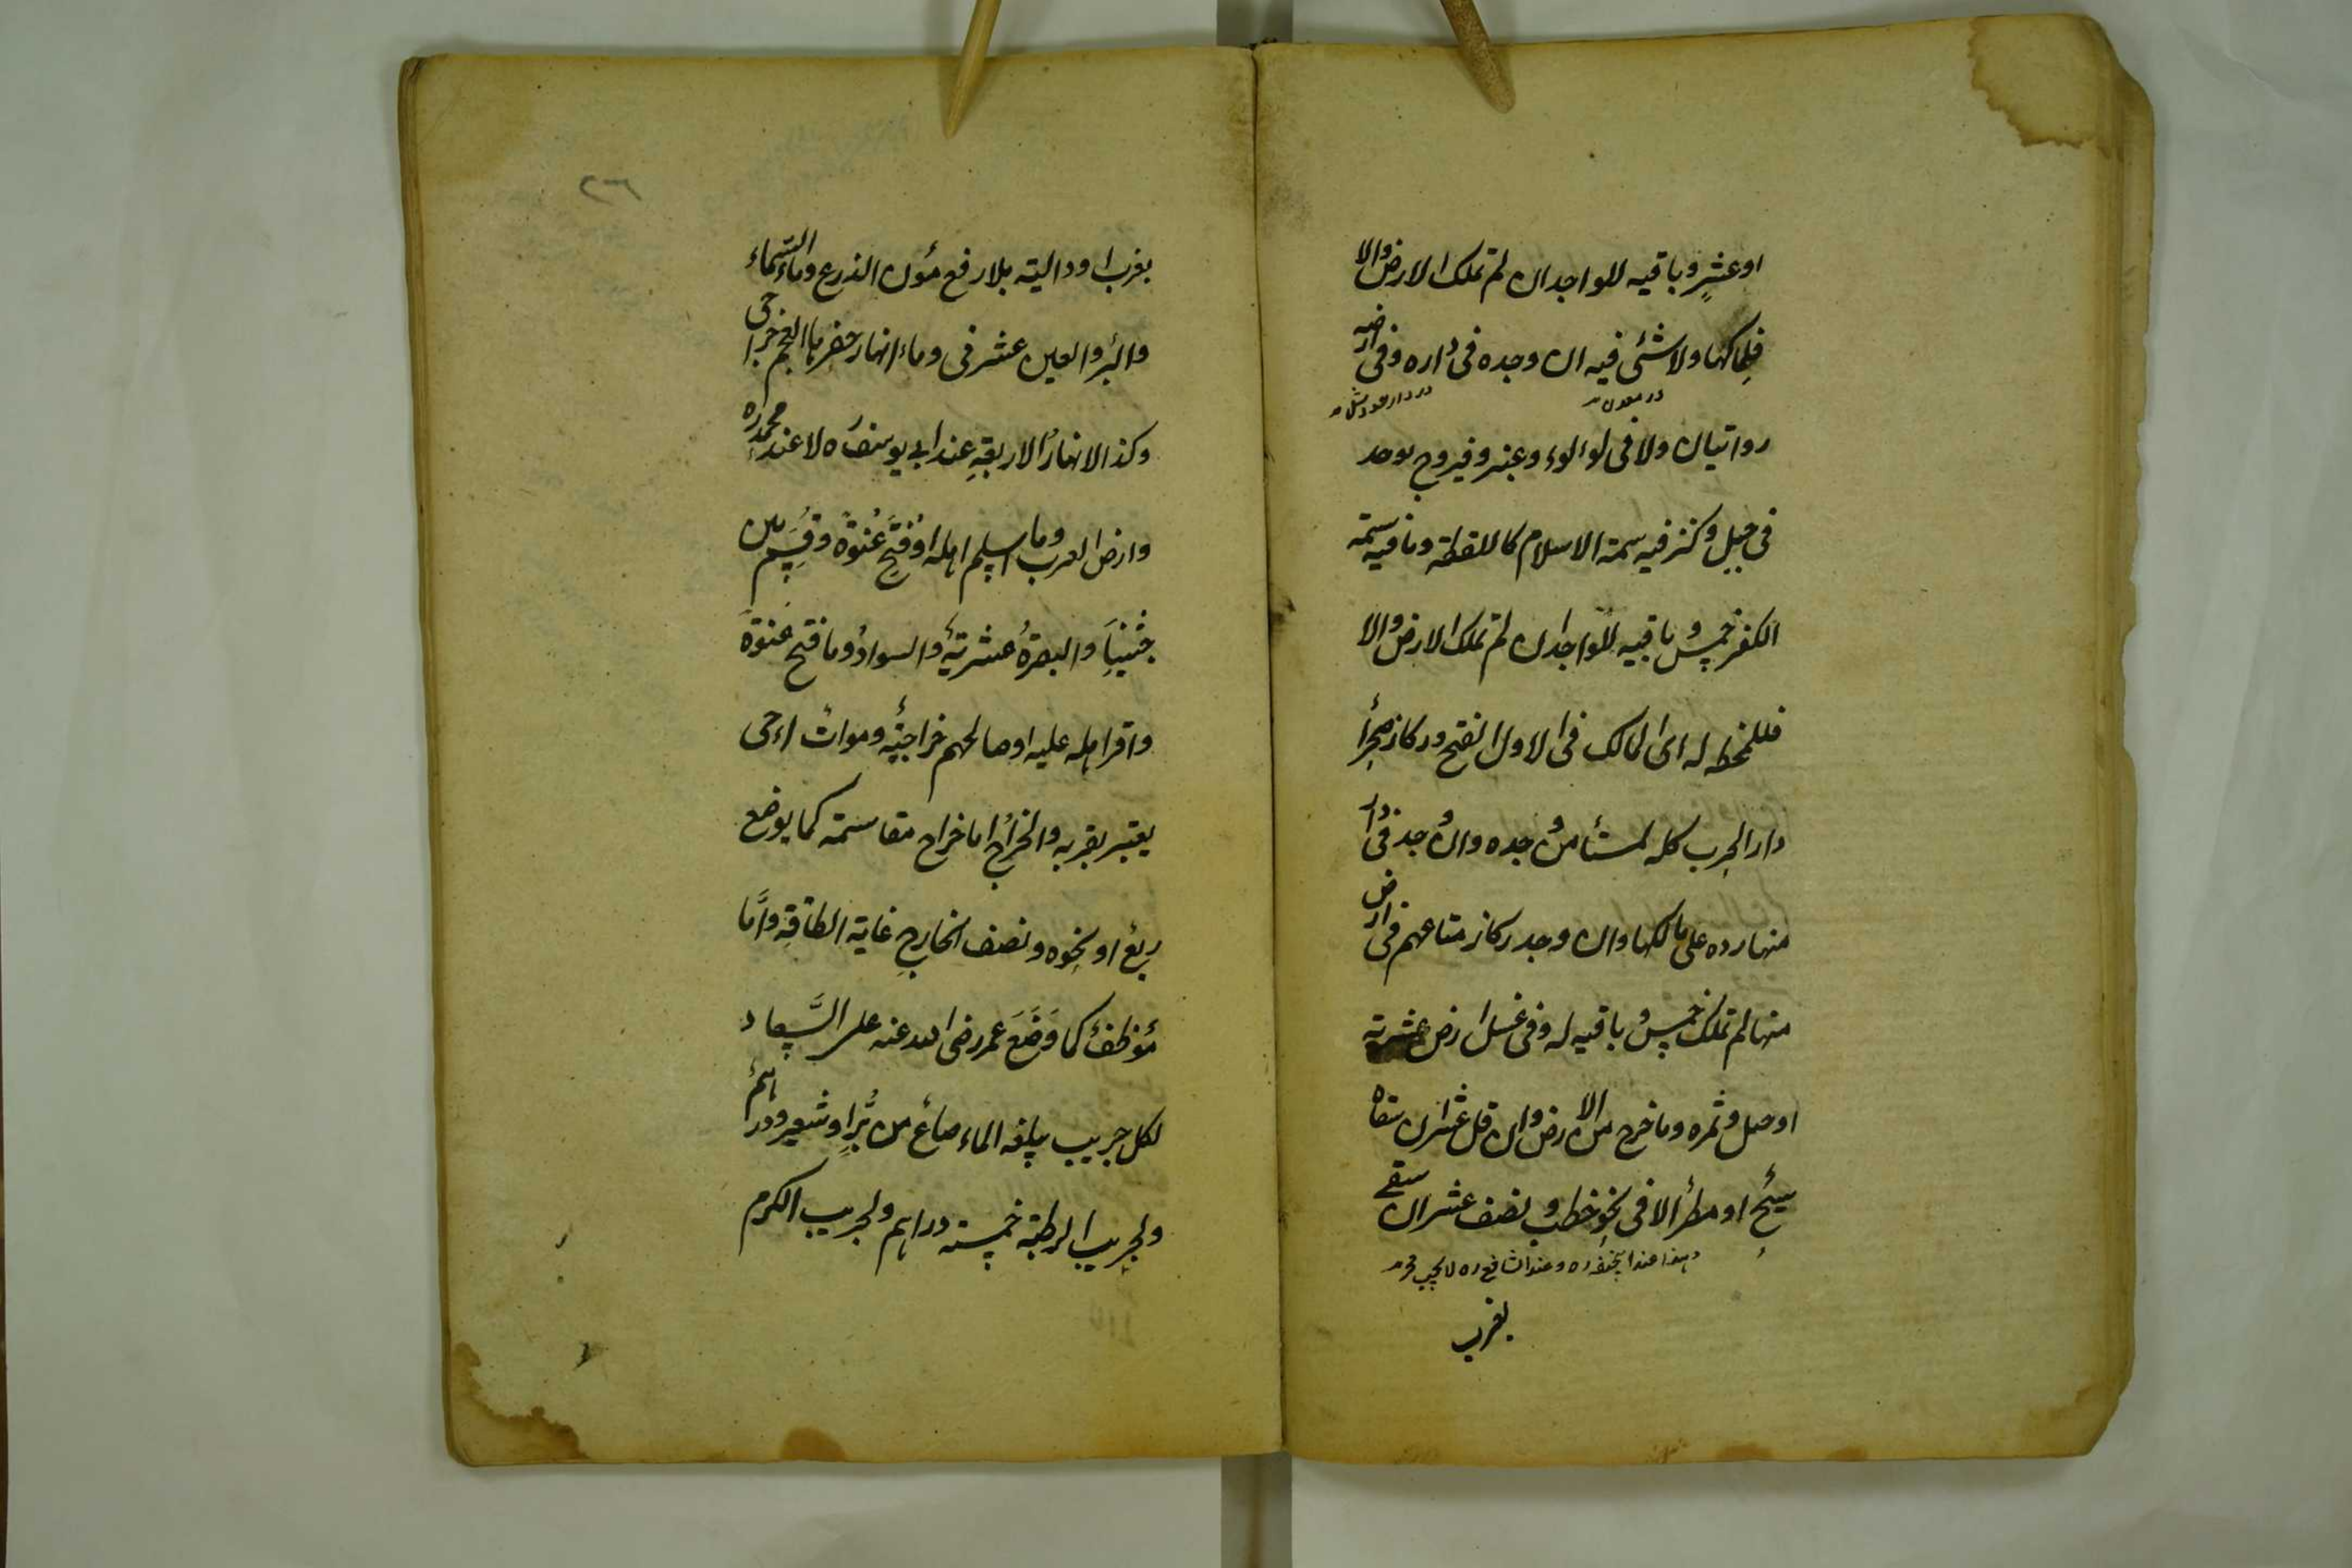 او عشر وباقيه للواجد ان لم تملك الارض والا
فلمالكها ولا شئ فيه ان وجده في داره وفي ارضه
در معدن
روايتان ولا في لؤلوء وعنبر وفيروج يوجد
في جبل وكنز فيه سمة الاسلام كاللقطة وما فيه سمة
الكفر خمس وباقيه للواجد ان لم تملك الارض والا
فللمختط له اى المالك في الاول الفتح وركاز صحراء
دار الحرب كله لمستأمن وجده وان وجد في دار
منها رده على مالكها وان وجد ركاز متاعهم في ارض
منها لم تملك خمس وباقيه له وفي عسل ارض عشرية
او جبل وثمره وما خرج من الارض وان قل عشر ان سقاه
سيح او مطر الا في نحو حطب ونصف عشر ان سقي
وهذا عند ابيحنيفه ره وعند الشافع ره لا يجب
بغرب
٢٦
بغرب او دالية بلا رفع مؤن الذرع وماء السماء
والبئر والعين عشرى وماء انهار حفرها العجم خراجى
وكذا الانهار الاربعة عند ابي يوسف ره لا عند محمد ره
وارض العرب وما اسلم اهله او فتح عنوة وقسم بين
جيشنا والبصرة عشرية والسواد وما فتح عنوة
واقر اهله عليه او صالحهم خراجية وموات احى
يعتبر بقربه والخراج اما خراج مقاسمة كما يوضع
ربع او نحوه ونصف الخارج غاية الطاقة واما
مؤظف كما وضع عمر رضى الله عنه على السواد
لكل جريب يبلغه الماء صاع من بر او شعير ودرهم
ولجريب الرطبة خمسة دراهم ولجريب الكرم